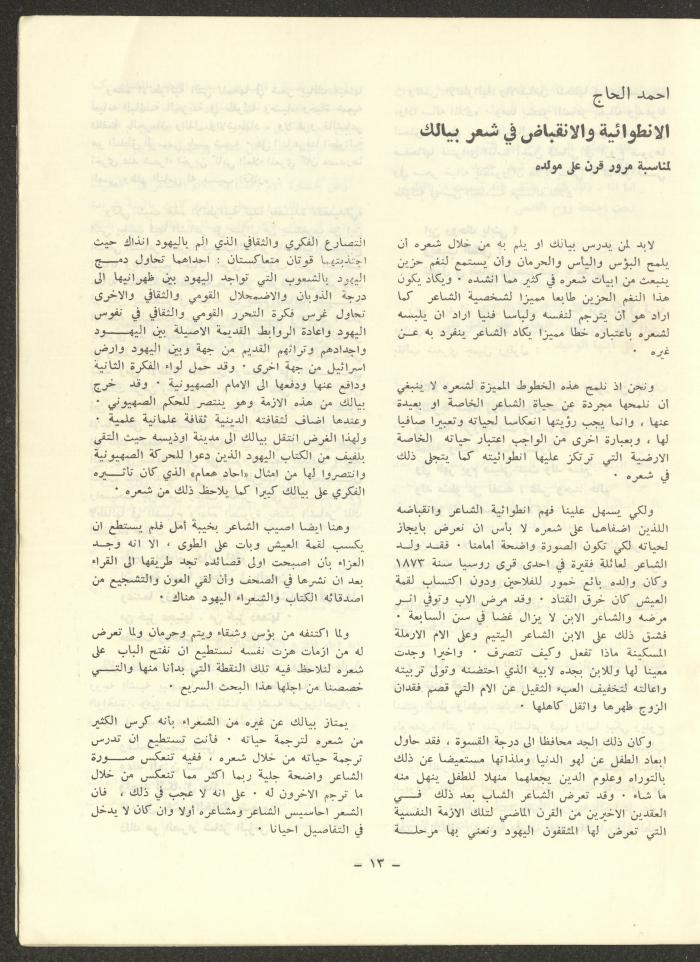 احمد الحاج
الانطوائية والانقباض في شعر بيالك
لمناسبة مرور قرن على مولده
لابد لمن يدرس بيالك او يلم به من خلال شعره أن
يلمح البؤس واليأس والحرمان وأن يستمع لنغم حزين
ينبعث من ابيات شعره في كثير مما انشده ٠ ويكاد يكون
هذا النغم الحزين طابعا مميزا لشخصية الشاعر كما
اراد هو أن يترجم لنفسه ولباسا فنيا اراد ان يلبسه
لشعره باعتباره خطا مميزا يكاد الشاعر ينفرد به عـن
غيره ٠
ونحن اذ نلمح هذه الخطوط المميزة لشعره لا ينبغي
أن نلمحها مجردة عن حياة الشاعر الخاصة او بعيدة
عنها ، وانما يجب رؤيتها انعكاسا لحياته وتعبيرا صافيا
لها ، وبعبارة اخرى من الواجب اعتبار حياته الخاصة
الارضية التي ترتكز عليها انطوائيته كما يتجلى ذلك
في شعره ٠
ولكي يسهل علينا فهم انطوائية الشاعر وانقباضه
اللذين اضفاهما على شعره لا بأس ان نعرض بايجاز
لحياته لكي تكون الصورة واضحة امامنا ٠ فقــد ولــد
الشاعر لعائلة فقيرة في احدى قرى روسيا سنة ١٨٧٣
وكان والده بائع خمور للفلاحين ودون اكتساب لقمة
العيش كان خرق القتاد ٠ وقد مرض الاب وتوفي اثــر
مرضه والشاعر الابن لا يزال غضا في سن السابعة ٠
فشق ذلك على الابن الشاعر اليتيم وعلى الام الارملة
المسكينة ماذا تفعل وكيف تتصرف ٠ واخيرا وجدت
معينا لها وللابن بجده لابيه الذي احتضنه وتولى تربيته
واعالته لتخفيف العبء الثقيل عن الام التي قصم فقدان
الزوج ظهرها واثقل كاهلها ٠
وكان ذلك الجد محافظا الى درجة القسوة ، فقد حاول
ابعاد الطفل عن لهو الدنيا وملذاتها مستعيضا عن ذلك
بالتوراه وعلوم الدين يجعلهما منهلا للطفل ينهل منه
ما شاء ٠ وقد تعرض الشاعر الشاب بعد ذلك فــــي
العقدين الاخيرين من القرن الماضي لتلك الازمة النفسية
التي تعرض لها المثقفون اليهود ونعني بها مرحلـــة
التصارع الفكري والثقافي الذي الم باليهود انذاك حيث
اجتذبتهما قوتان متعاكستان : احداهما تحاول دمـــج
اليهود بالشعوب التي تواجد اليهود بين ظهرانيها الى
درجة الذوبان والاضمحلال القومي والثقافي والاخرى
تحاول غرس فكرة التحرر القومي والثقافي في نفوس
اليهود واعادة الروابط القديمة الاصيلة بين اليهــــود
واجدادهم وتراثهم القديم من جهة وبين اليهود وارض
اسرائيل من جهة اخرى ٠ وقد حمل لواء الفكرة الثانية
ودافع عنها ودفعها الى الامام الصهيونية ٠ وقد خرج
بيالك من هذه الازمة وهو ينتصر للحكم الصهيوني ٠
وعندها اضاف لثقافته الدينية ثقافة علمانية علمية ٠
ولهذا الغرض انتقل بيالك الى مدينة اوذيسه حيث التقى
بلفيف من الكتاب اليهود الذين دعوا للحركة الصهيونية
وانتصروا لها من امثال «احاد هعام» الذي كان تأثــيره
الفكري على بيالك كبيرا كما يلاحظ ذلك من شعره ٠
وهنا ايضا اصيب الشاعر بخيبة أمل فلم يستطع ان
يكسب لقمة العيش وبات على الطوى ، الا انه وجـد
العزاء بأن اصبحت اولى قصائده تجد طريقها الى القراء
بعد ان نشرها في الصحف وأن لقي العون والتشجيع من
اصدقائه الكتاب والشعراء اليهود هناك ٠
ولما اكتنفه من بؤس وشقاء ويتم وحرمان ولما تعرض
له من ازمات هزت نفسه نستطيع ان نفتح الباب على
شعره لنلاحظ فيه تلك النقطة التي بدأنا منها والتـــي
خصصنا من اجلها هذا البحث السريع ٠
يمتاز بيالك عن غيره من الشعراء بأنه كرس الكثير
من شعره لترجمة حياته ٠ فأنت تستطيع ان تدرس
ترجمة حياته من خلال شعره ، ففيه تنعكس صــورة
الشاعر واضحة جلية ربما اكثر مما تنعكس من خلال
ما ترجم الاخرون له ٠ على انه لا عجب في ذلك ، فان
الشعر احاسيس الشاعر ومشاعره أولا وان كان لا يدخل
في التفاصيل احيانا ٠
– ١٣ –